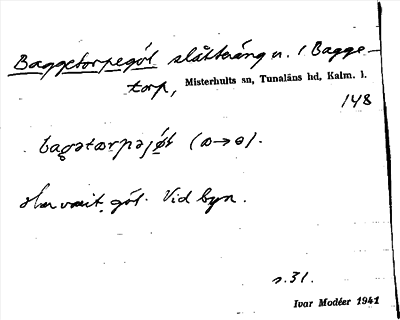 Baggetorpegöl slåtteräng n. i Bagge-
torp, Misterhults sn, Tunaläns hd, Kalm. l.
148
Har varit göl. Vid byn.
s. 31.
Ivar Modéer 1941